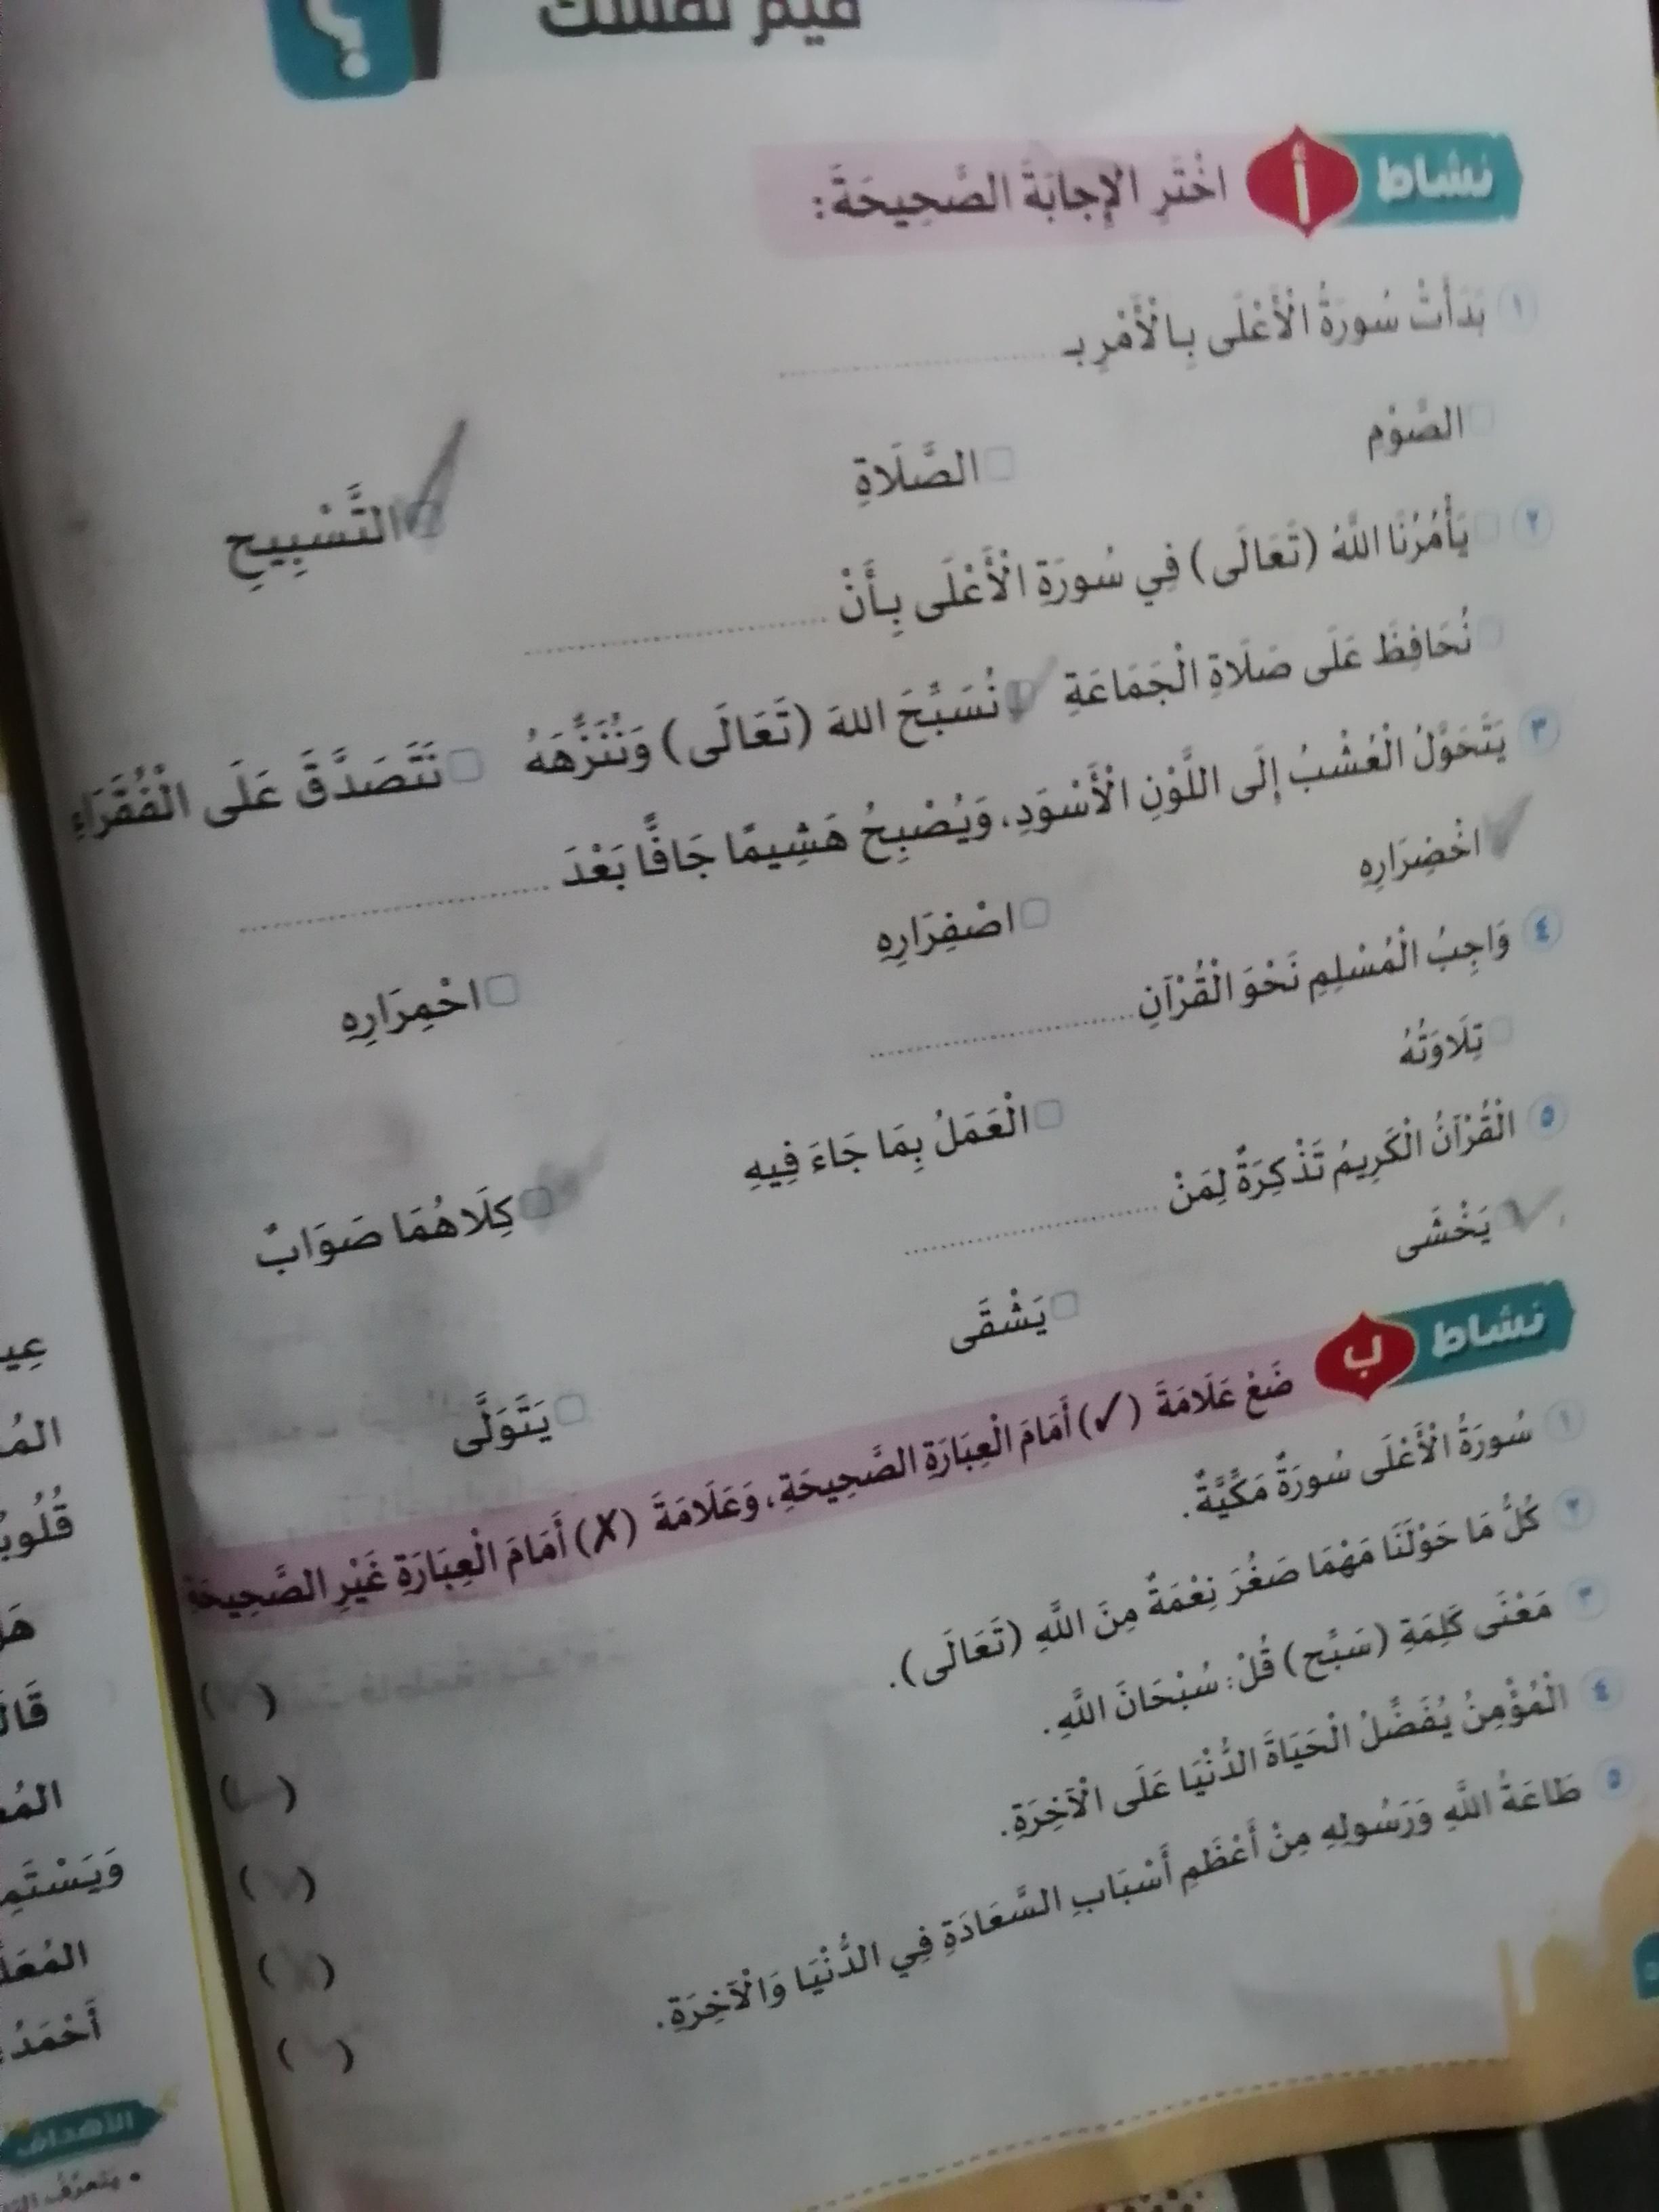 قيم نفسك
؟
نشاط أ اخْتَرِ الْإِجَابَةَ الصَّحِيحَةَ:
١ بَدَأَتْ سُورَةُ الْأَعْلَى بِالْأَمْرِ بِـ ....................
الصَّوْمِ الصَّلَاةِ التَّسْبِيحِ
٢ يَأْمُرُنَا اللَّهُ (تَعَالَى) فِي سُورَةِ الْأَعْلَى بِأَنْ ....................
نُحَافِظَ عَلَى صَلَاةِ الْجَمَاعَةِ نُسَبِّحَ اللهَ (تَعَالَى) وَنُنَزِّهَهُ نَتَصَدَّقَ عَلَى الْفُقَرَاءِ
٣ يَتَحَوَّلُ الْعُشْبُ إِلَى اللَّوْنِ الْأَسْوَدِ، وَيُصْبِحُ هَشِيمًا جَافًّا بَعْدَ ....................
اخْضِرَارِهِ اصْفِرَارِهِ احْمِرَارِهِ
٤ وَاجِبُ الْمُسْلِمِ نَحْوَ الْقُرْآنِ ....................
تِلَاوَتُهُ الْعَمَلُ بِمَا جَاءَ فِيهِ كِلَاهُمَا صَوَابٌ
٥ الْقُرْآنُ الْكَرِيمُ تَذْكِرَةٌ لِمَنْ ....................
يَخْشَى يَشْقَى يَتَوَلَّى
نشاط ب ضَعْ عَلَامَةَ (✓) أَمَامَ الْعِبَارَةِ الصَّحِيحَةِ، وَعَلَامَةَ (✗) أَمَامَ الْعِبَارَةِ غَيْرِ الصَّحِيحَةِ
١ سُورَةُ الْأَعْلَى سُورَةٌ مَكِّيَّةٌ. ( )
٢ كُلُّ مَا حَوْلَنَا مَهْمَا صَغُرَ نِعْمَةٌ مِنَ اللَّهِ (تَعَالَى). ( )
٣ مَعْنَى كَلِمَةِ (سَبِّح) قُلْ: سُبْحَانَ اللَّهِ. ( )
٤ الْمُؤْمِنُ يُفَضِّلُ الْحَيَاةَ الدُّنْيَا عَلَى الْآخِرَةِ. ( )
٥ طَاعَةُ اللَّهِ وَرَسُولِهِ مِنْ أَعْظَمِ أَسْبَابِ السَّعَادَةِ فِي الدُّنْيَا وَالْآخِرَةِ. ( )
قَالَ
وَيَسْتَمِ
أَحْمَدُ
الأهداف